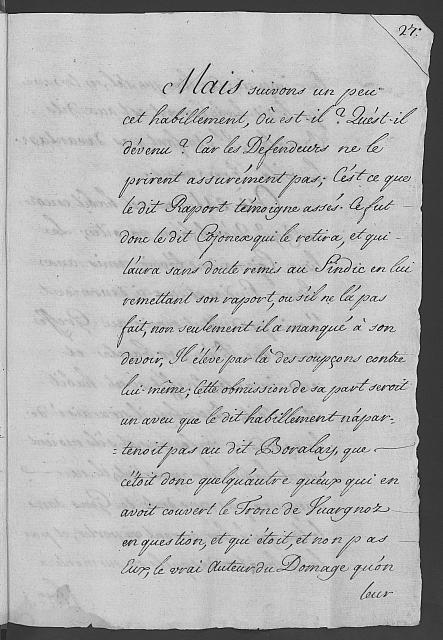 27.
Mais suivons un peu
cet habillement, Où est-il? Qu'est-il
dévenu? Car les Défendeurs ne le
prirent assurément pas; C'ést ce que
le dit Raport témoigne assés. Ce fut
donc le dit Cosonex qui le retira, et qui
l'aura sans doute remis au Sindic en lui
remettant son raport, ou s'il ne l'a pas
fait, non seulement il a manqué à son
devoir, Il éléve par là des soupçons contre
lui-même; Cette obmission de sa part seroit
un aveu que le dit habillement n'apar-
-tenoit pas au dit Boralay, que
c'étoit donc quelqu'autre qu'eux qui en
avoit couvert le Tronc de Vuargnoz
en question, et qui étoit, et non pas
Eux, le vrai Auteur du Domage qu'on
leur